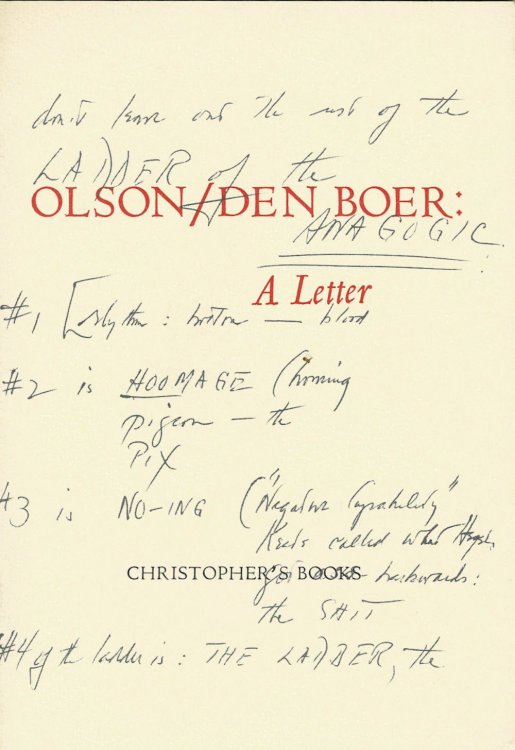 don't leave out the rest of the
LADDER of the
OLSON/DEN BOER:
ANAGOGIC
A Letter
#1 [Rhythm: bottom — blood
#2 is HOOMAGE (homing
pigeon — the
PIX
#3 is NO-ING ("Negative Capability"
Keats called what
CHRISTOPHER'S BOOKS
backwards:
the SHIT
#4 of the ladder is: THE LADDER, the